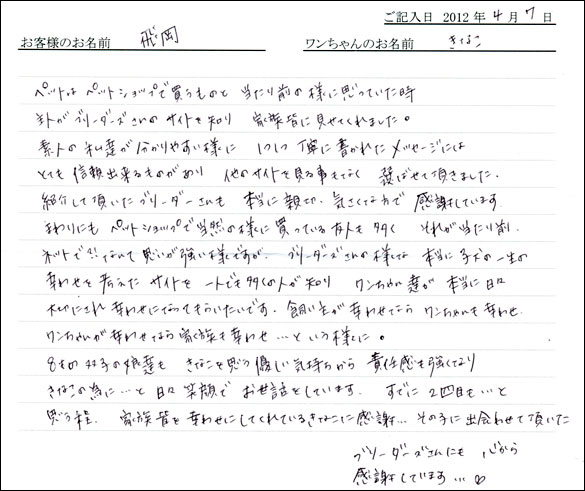 ご記入日 2012年 4月 7日
お客様のお名前 飛岡 ワンちゃんのお名前 きなこ
ペットは ペットショップで買うものと 当たり前の様に思っていた時
主人がブリーダーズさんのサイトを知り 家族皆に見せてくれました。
素人の私達が分かりやすい様に 1つ1つ丁寧に書かれたメッセージには
とても信頼出来るものがあり 他のサイトを見る事もなく 選ばせて頂きました。
紹介して頂いたブリーダーさんも 本当に親切、気さくな方で 感謝しています
まわりにもペットショップで当然の様に買っている友人も多く それが当たり前。
ネットで?!なんて思いが強い様ですが、ブリーダーズさんの様な 本当に子犬の一生の
幸わせを考えたサイトを 一人でも多くの人が知り ワンちゃん達が 本当に日々
大切にされ 幸わせになってもらいたいです。飼い主が幸わせなら ワンちゃんも幸わせ
ワンちゃんが幸わせなら家族も幸わせ…という様に。
8才の双子の娘達も きなこを思う優しい気持ちから 責任感も強くなり
きなこの為に…と日々笑顔で お世話をしています。 すでに2匹目も…と
思う程、 家族皆を幸わせにしてくれているきなこに感謝… その子に出会わせて頂いた
ブリーダーズさんにも 心から
感謝しています…♡